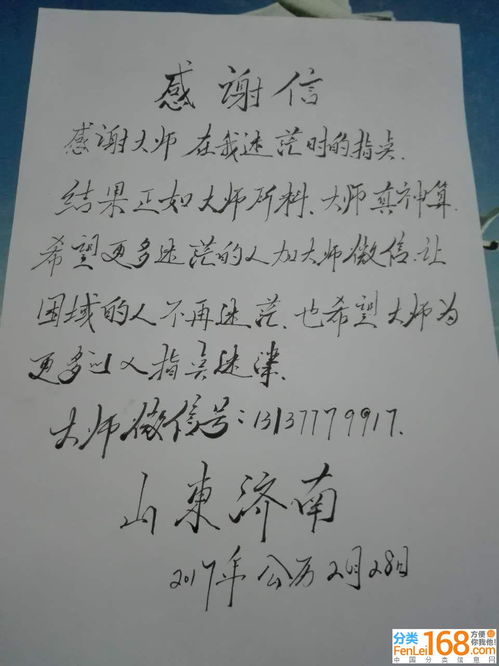 感谢信
感谢大师 在我迷茫时的指点.
结果正如大师所料、大师真神算.
希望更多迷茫的人加大师微信.让
困域的人不再迷茫、也希望大师为
更多的人指点迷津.
大师微信号:13137779917.
山東济南
2017年公历2月28日
分类168.com 方便你我他!
FenLei
中国分类信息网